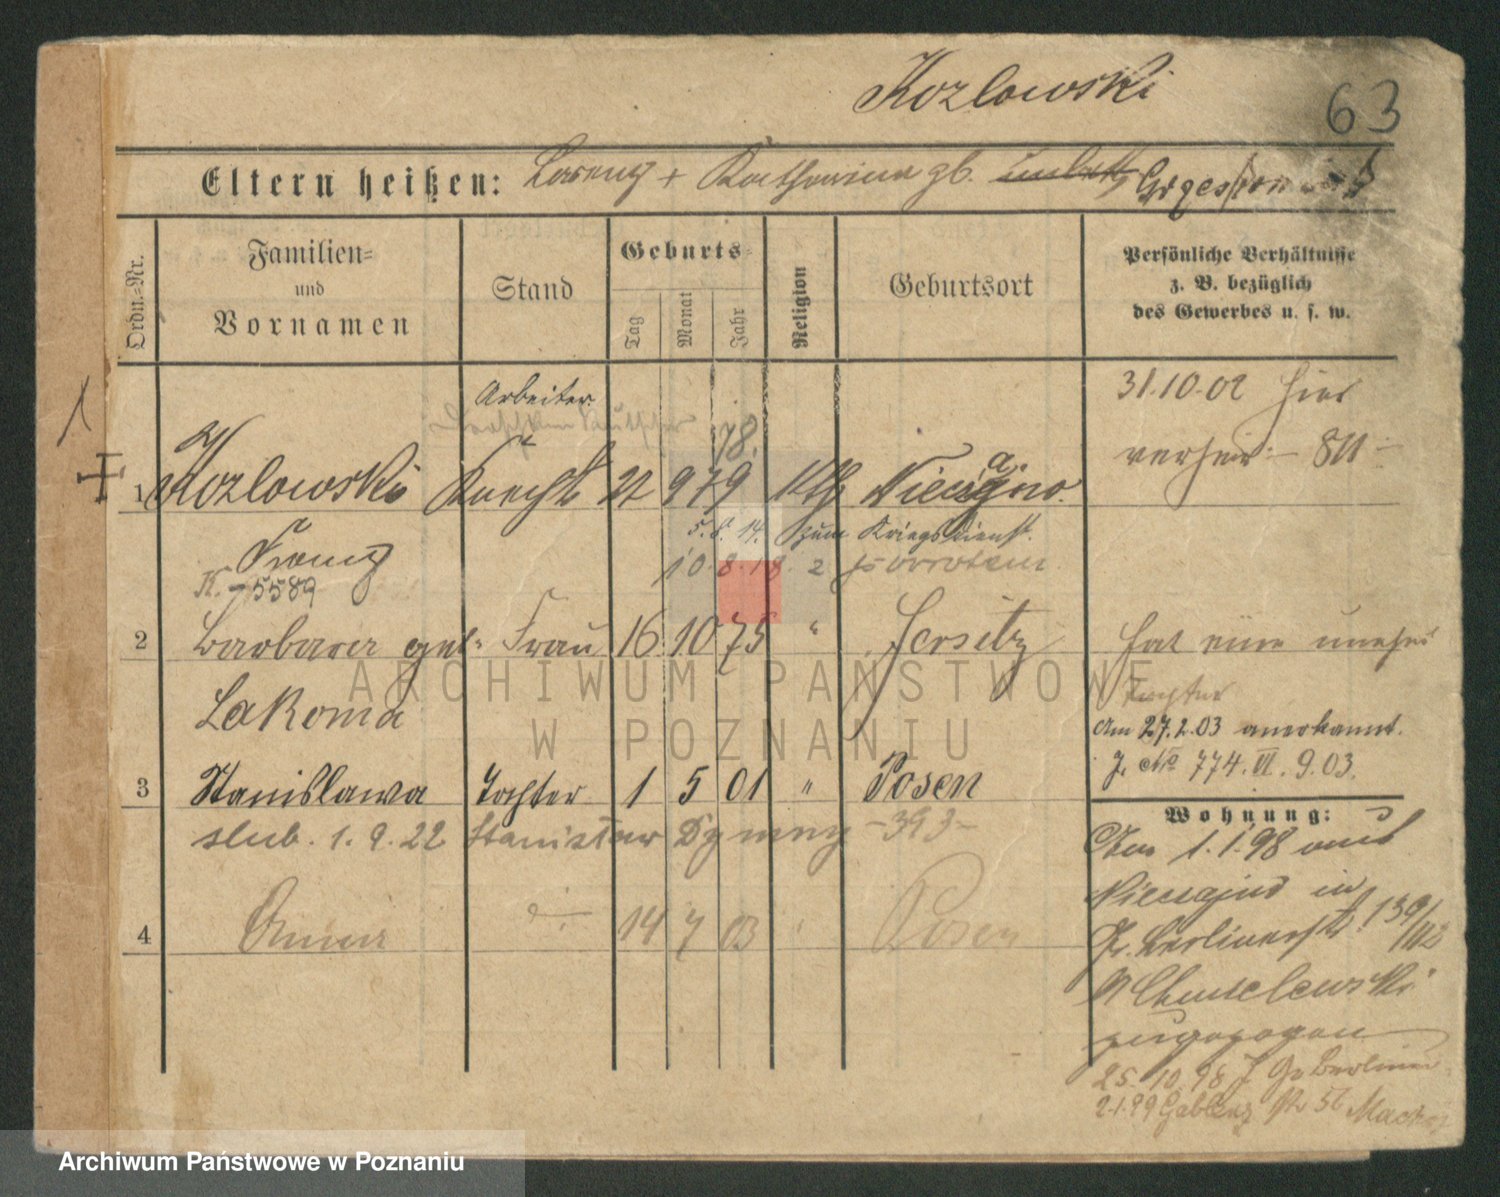 Kozlowski
63
Eltern heißen: Lorenz + Katharina gb.
Ordn.-Nr.
Familien- und Vornamen
Stand
Geburts-
Tag
Monat
Jahr
Religion
Geburtsort
Persönliche Verhältnisse
z. B. bezüglich
des Gewerbes u. s. w.
Arbeiter
31.10.02 hier
78.
verheir. - 811 -
1 Kozlowski Knecht 22 9 79 kth
5.8.14. zum Kriegsdienst.
Franz
10.8.18. 2
K. - 5589
2 Barbara geb. Frau 16 10 75 " Jersitz hat eine unehel
Lakoma
Tochter
Am 27.2.03 anerkannt.
J. No 774. VI. 9.03.
3 Stanislawa Tochter 1 5 01 " Posen
Wohnung:
slub. 1.9.22 Stanisław -393-
1.1.98
in
4 Anna 14 7 03 " Posen
Gr. Berlinerstr 139/142
zugezogen
25.10.98 Gr Berliner
2.1.99 Gablenz str
ARCHIWUM PAŃSTWOWE
W POZNANIU
Archiwum Państwowe w Poznaniu